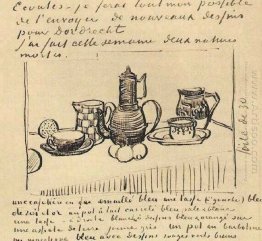 Ecoutes - je ferai tout mon possible
de t'envoyer de nouveaux dessins
pour Dordrecht
J'ai fait cette semaine deux natures
mortes.
toile de 30
une cafetière en fer émaillé bleu une tasse (à gauche) bleu
de roi et or un pot à lait carrelé bleu
une tasse blanche dessins bleu orangé sur
une assiette de terre jaune gris un pot en barbotine
bleu avec dessins rouges verts bruns